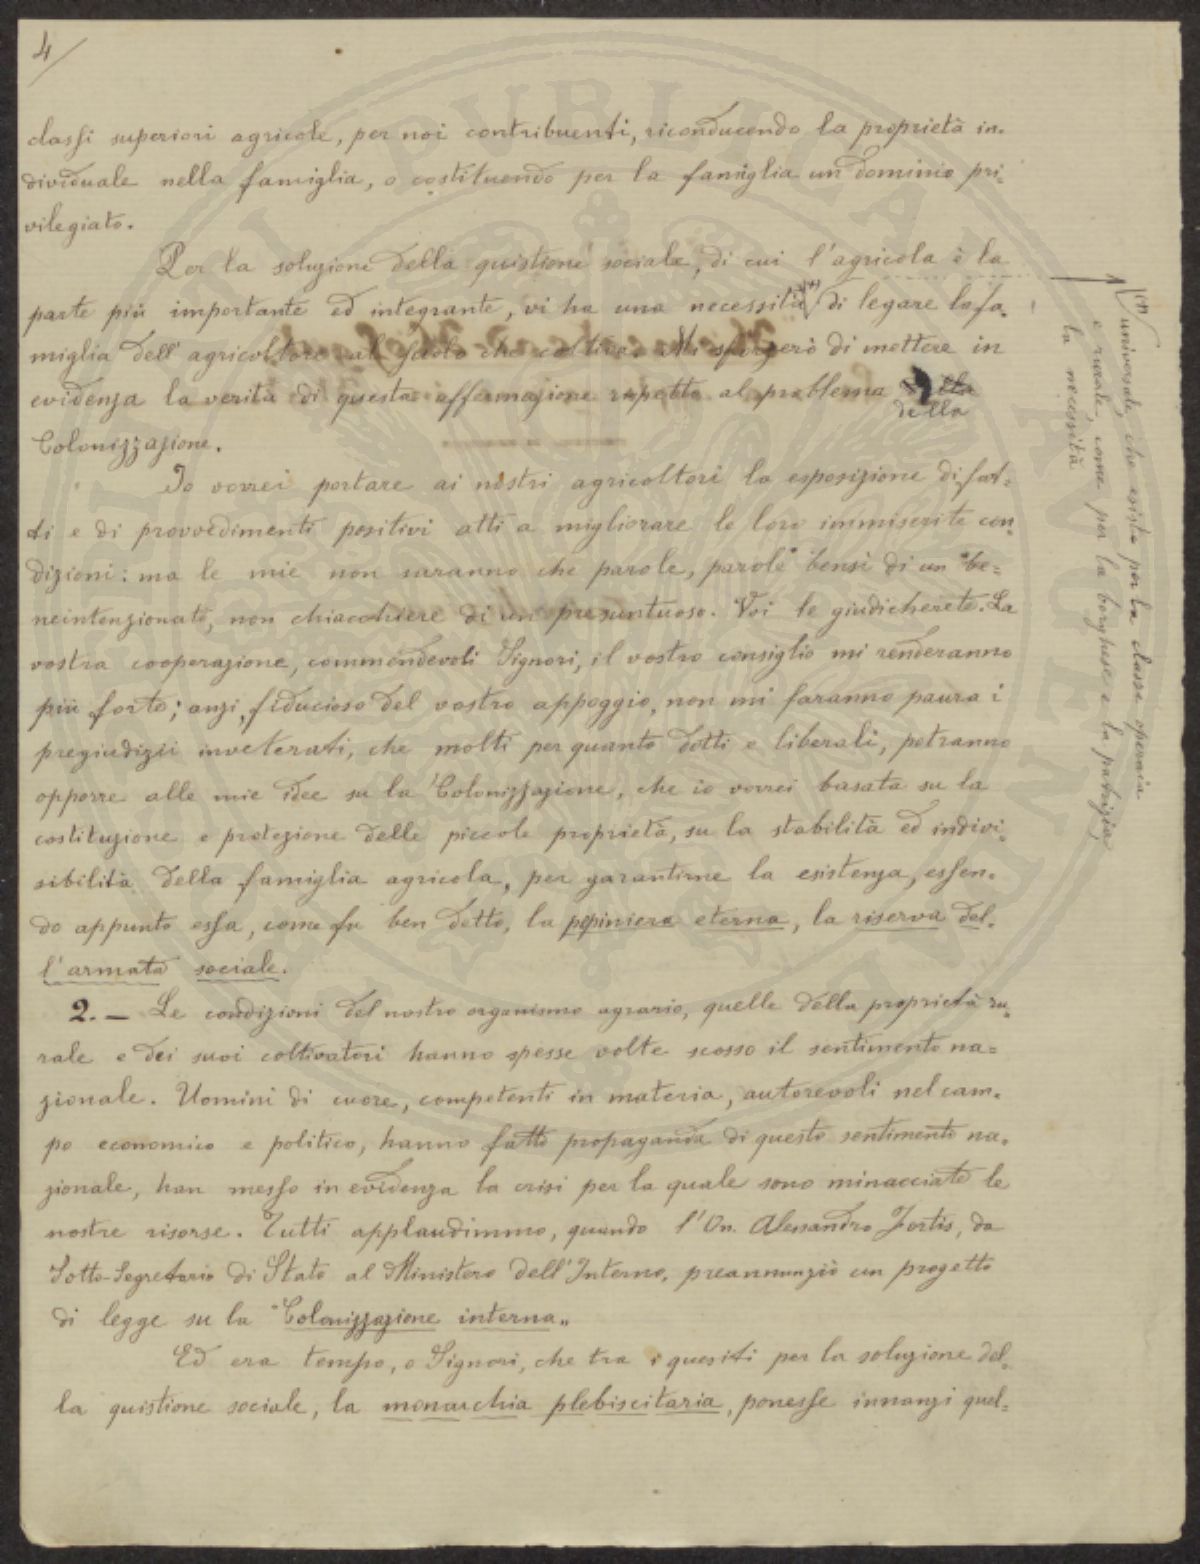 4/
classi superiori agricole, per noi contribuenti, riconducendo la proprietà in-
dividuale nella famiglia, o costituendo per la famiglia un dominio pri-
vilegiato.
Per la soluzione della quistione sociale, di cui l'agricola è la
parte più importante ed integrante, vi ha una necessità (*) di legare la fa-
miglia dell'agricoltore al suolo che coltiva. Mi sforzerò di mettere in
evidenza la verità di questa affermazione rispetto al problema della
Colonizzazione.
Io vorrei portare ai nostri agricoltori la esposizione di fat-
ti e di provvedimenti positivi atti a migliorare le loro immiserite con-
dizioni: ma le mie non saranno che parole, parole bensì di un "be-
neintenzionato, non chiacchiere di un presuntuoso. Voi le giudicherete. La
vostra cooperazione, commendevoli Signori, il vostro consiglio mi renderanno
più forte; anzi, fiducioso del vostro appoggio, non mi faranno paura i
pregiudizii inveterati, che molti per quanto dotti e liberali, potranno
opporre alle mie idee su la Colonizzazione, che io vorrei basata su la
costituzione e protezione delle piccole proprietà, su la stabilità ed indivi-
sibilità della famiglia agricola, per garantirne la esistenza, essen-
do appunto essa, come fu ben detto, la pepiniera eterna, la riserva del-
l'armata sociale.
2. — Le condizioni del nostro organismo agrario, quelle della proprietà ru-
rale e dei suoi coltivatori hanno spesse volte scosso il sentimento na-
zionale. Uomini di cuore, competenti in materia, autorevoli nel cam-
po economico e politico, hanno fatto propaganda di questo sentimento na-
zionale, han messo in evidenza la crisi per la quale sono minacciate le
nostre risorse. Tutti applaudimmo, quando l'On. Alessandro Fortis, da
Sotto-Segretario di Stato al Ministero dell'Interno, preannunziò un progetto
di legge su la "Colonizzazione interna„
Ed era tempo, o Signori, che tra i quesiti per la soluzione del-
la quistione sociale, la monarchia plebiscitaria, ponesse innanzi quel-
(*) universale, che esiste per la classe operaia
e rurale, come per la borghese e la patrizia,
la necessità